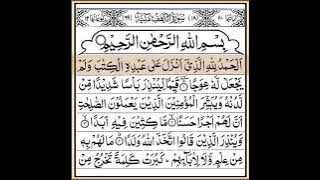 بِسْمِ اللهِ الرَّحْمٰنِ الرَّحِيْمِ
اَلْحَمْدُ لِلّٰهِ الَّذِيْۤ اَنْزَلَ عَلٰى عَبْدِهِ الْكِتٰبَ وَلَمْ
يَجْعَلْ لَّهٗ عِوَجًا قَيِّمًا لِّيُنْذِرَ بَاْسًا شَدِيْدًا مِّنْ
لَّدُنْهُ وَيُبَشِّرَ الْمُؤْمِنِيْنَ الَّذِيْنَ يَعْمَلُوْنَ الصّٰلِحٰتِ
اَنَّ لَهُمْ اَجْرًا حَسَنًا مَّاكِثِيْنَ فِيْهِ اَبَدًا
وَّيُنْذِرَ الَّذِيْنَ قَالُوا اتَّخَذَ اللهُ وَلَدًا مَا لَهُمْ بِهٖ
مِنْ عِلْمٍ وَّلَا لِاٰبَآئِهِمْ كَبُرَتْ كَلِمَةً تَخْرُجُ مِنْ